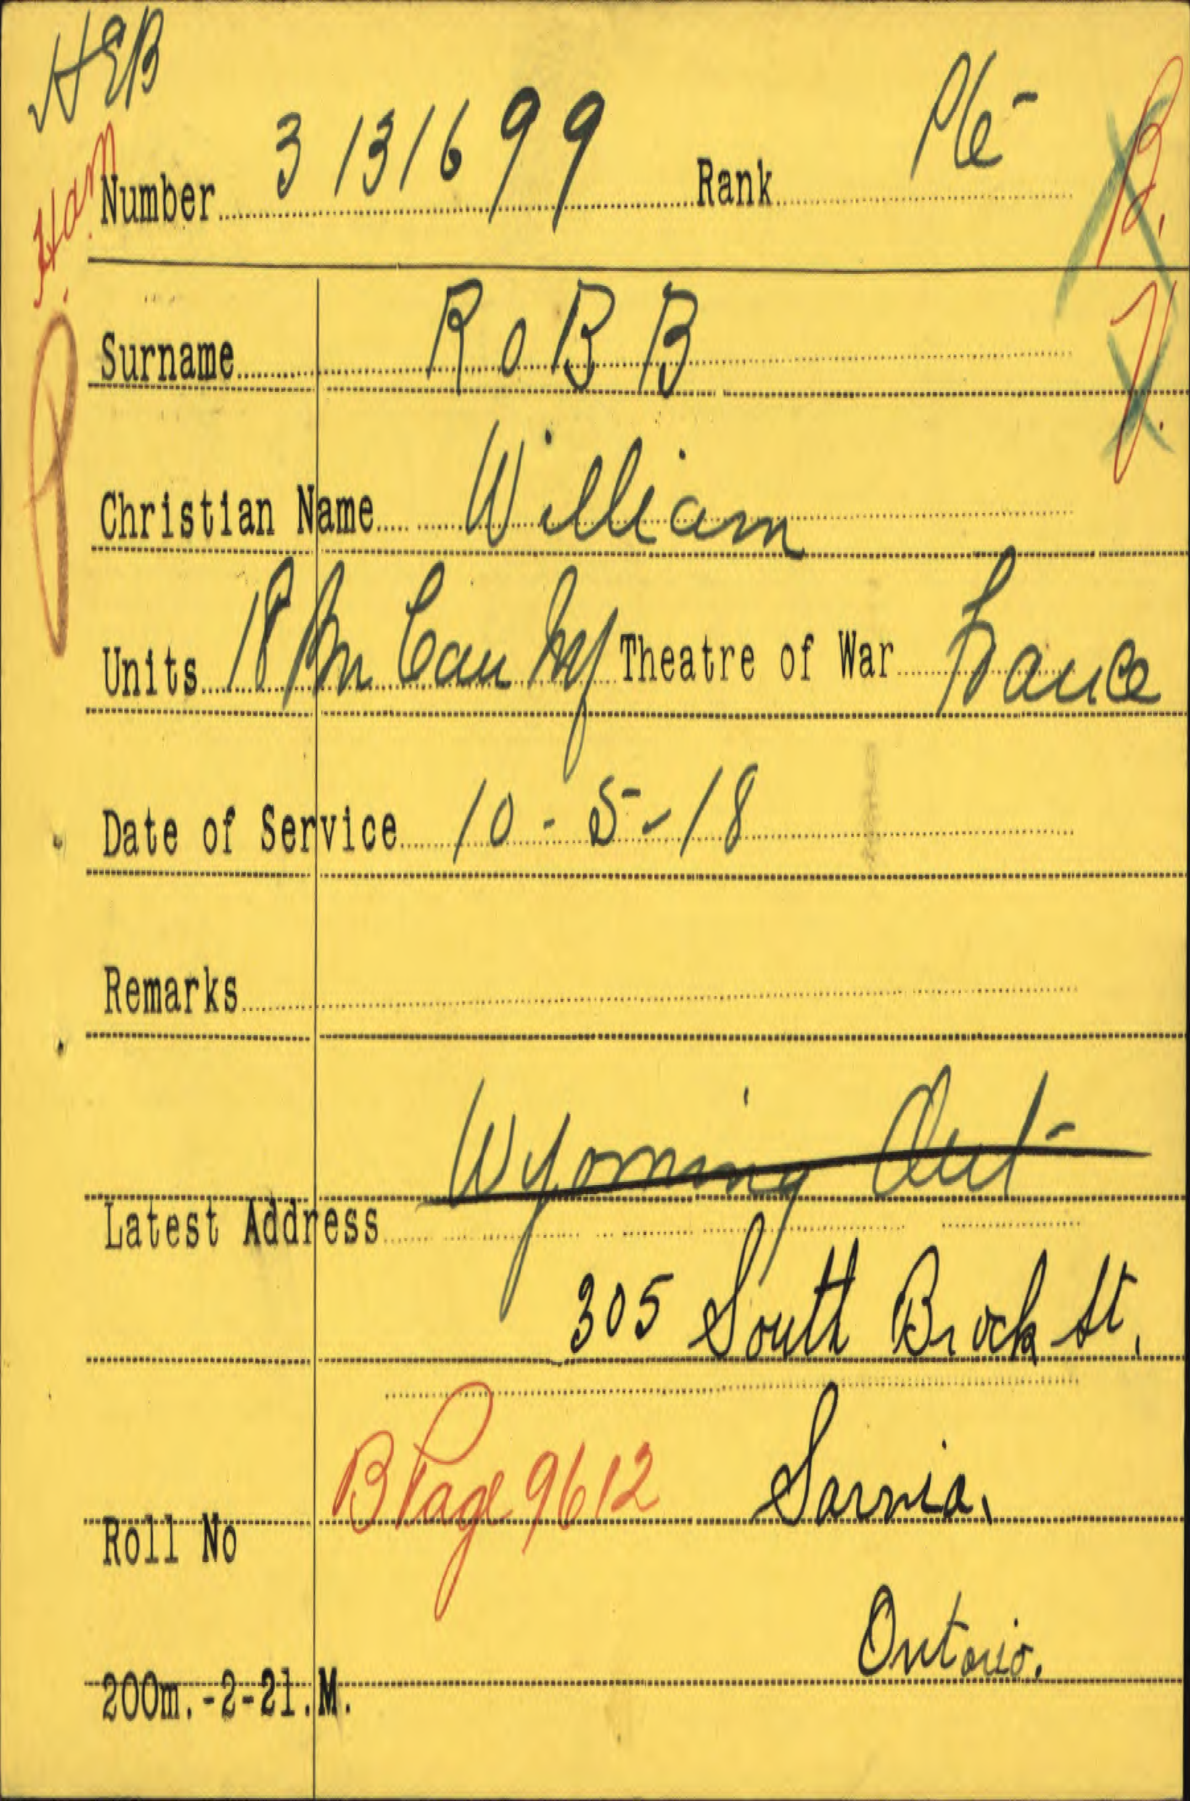 HEB
Ham.
Number 3131699 Rank Pte-
B.
V.
Surname ROBB
Christian Name William
Units 18 Bn Can Inf Theatre of War France
Date of Service 10-5-18
Remarks
Wyoming Ont-
Latest Address
305 South Brock St.
B Page 9612 Sarnia.
Roll No
Ontario.
200m.-2-21.M.